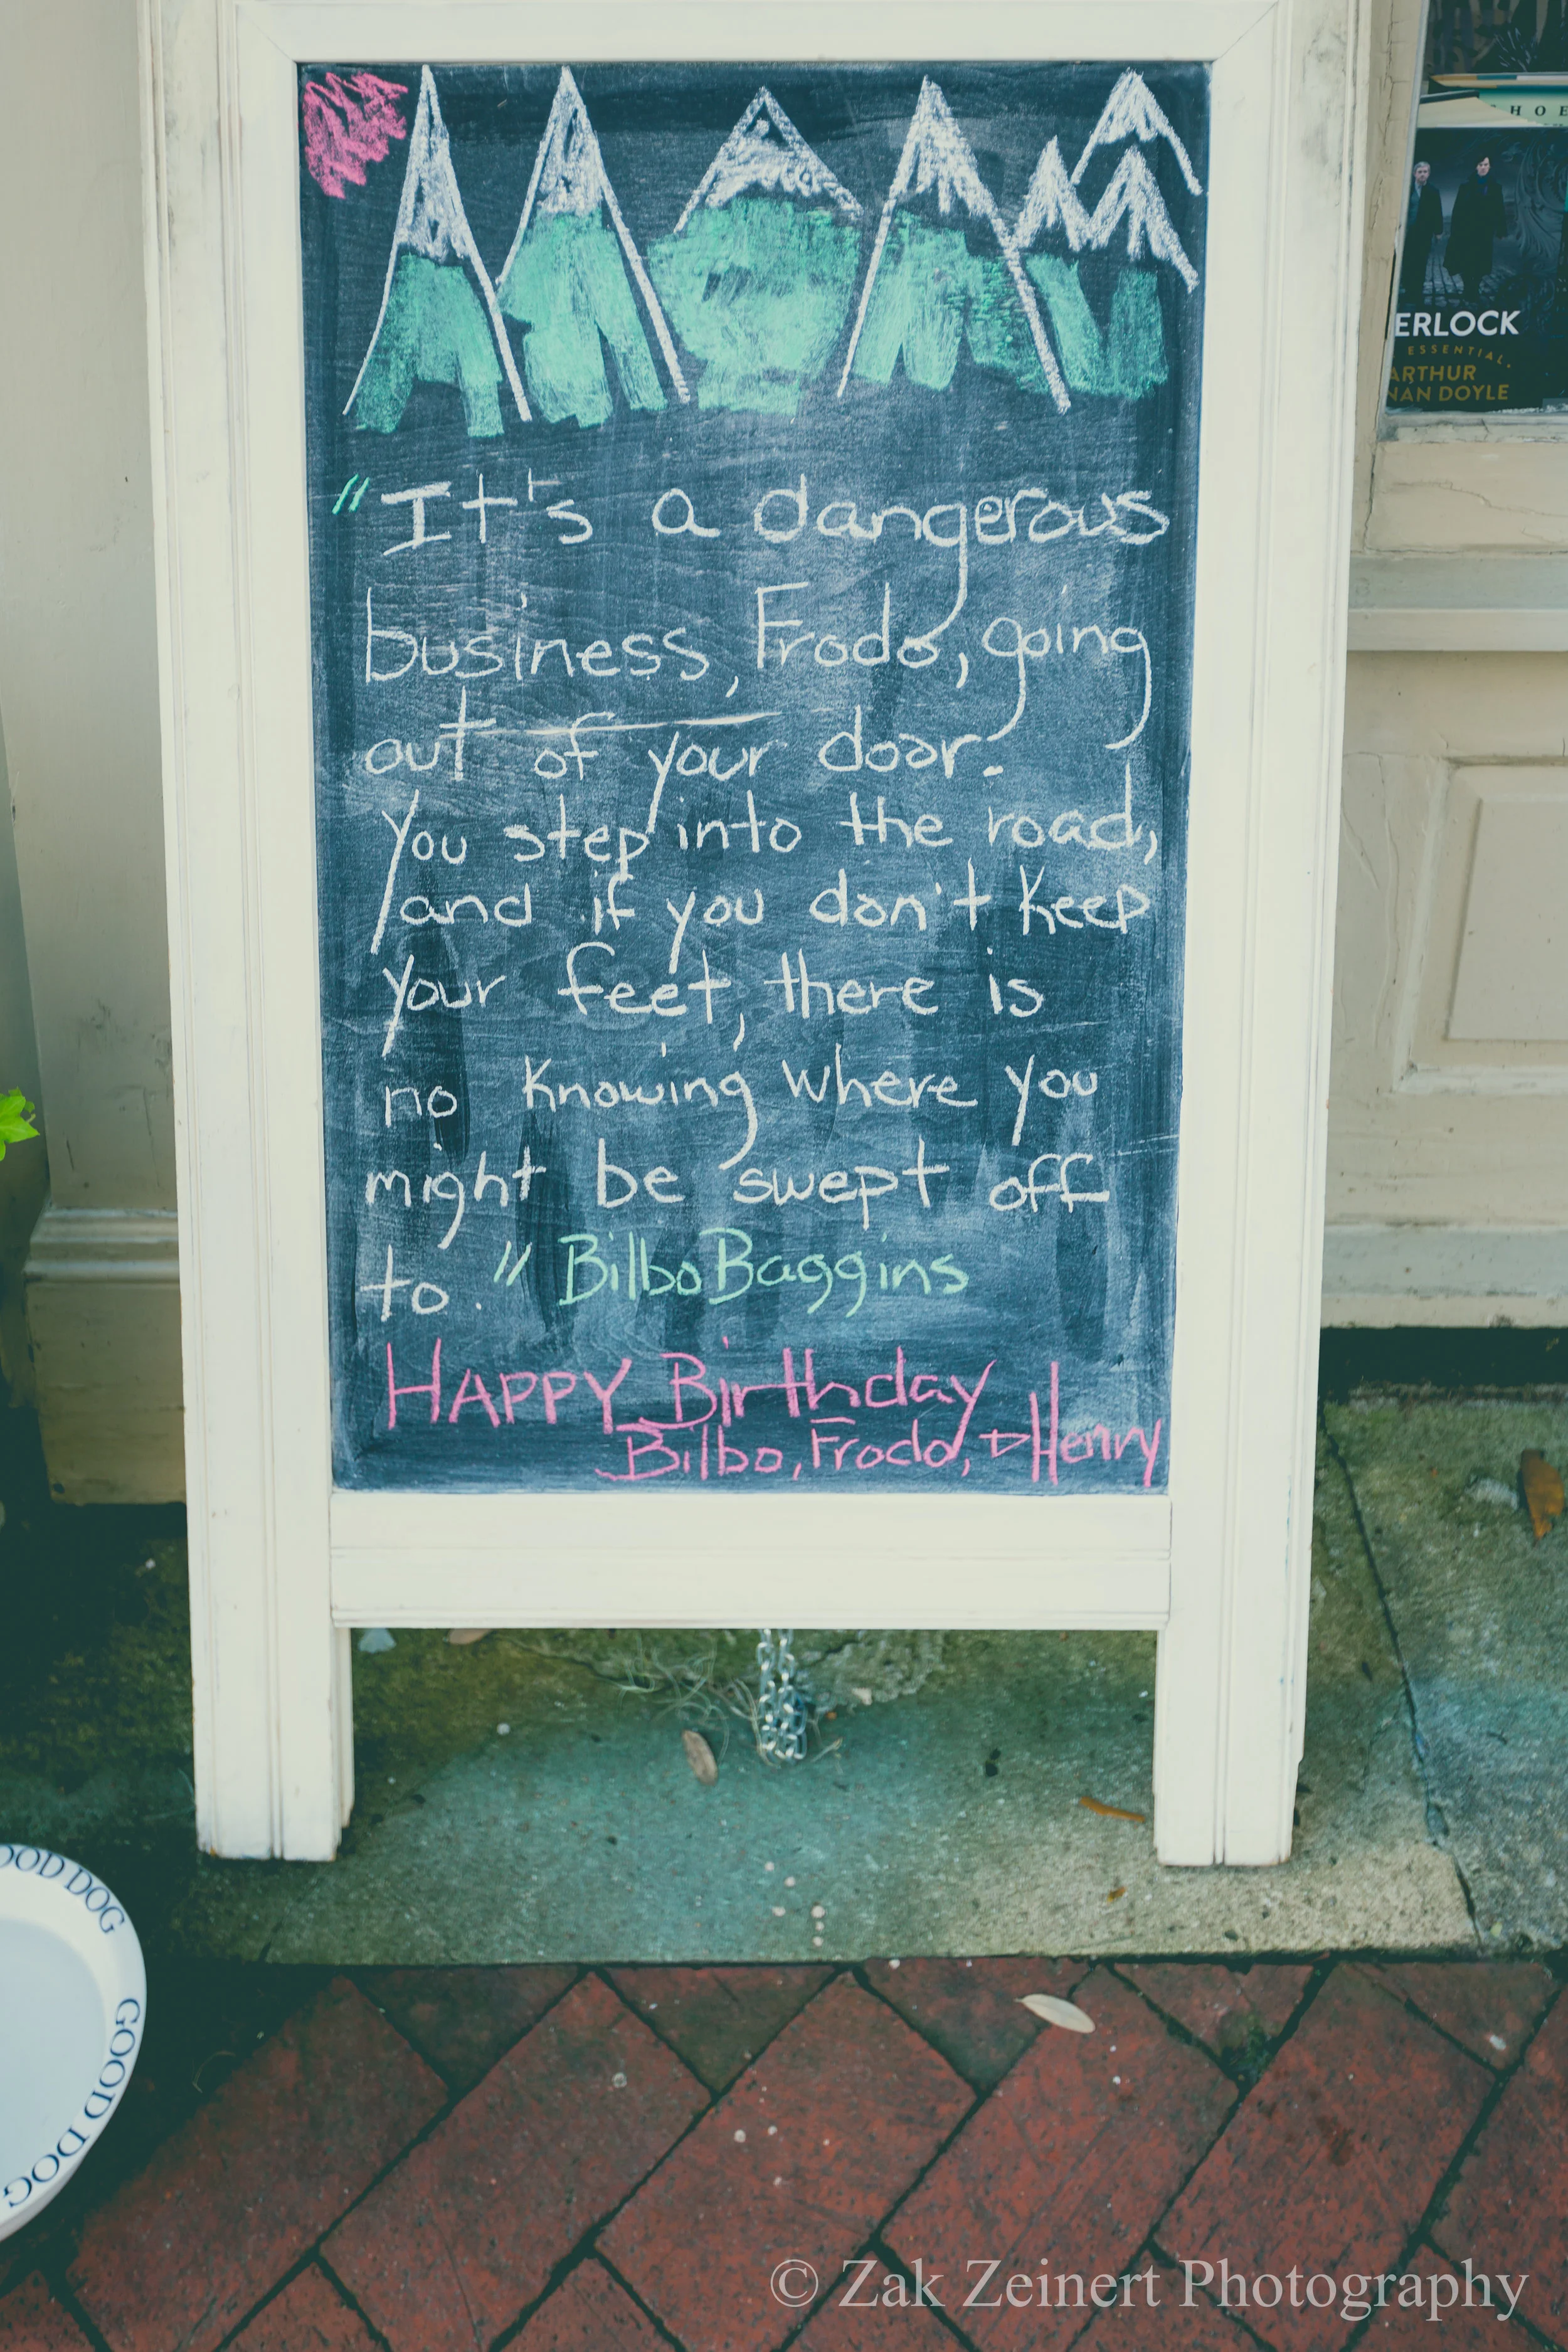 "It's a dangerous
business, Frodo, going
out of your door.
You step into the road,
and if you don't keep
your feet, there is
no knowing where you
might be swept off
to." Bilbo Baggins
HAPPY Birthday
Bilbo, Frodo, + Henry
HOE
ERLOCK
ESSENTIAL
ARTHUR
NAN DOYLE
OOD DOG
GOOD DOG
© Zak Zeinert Photography